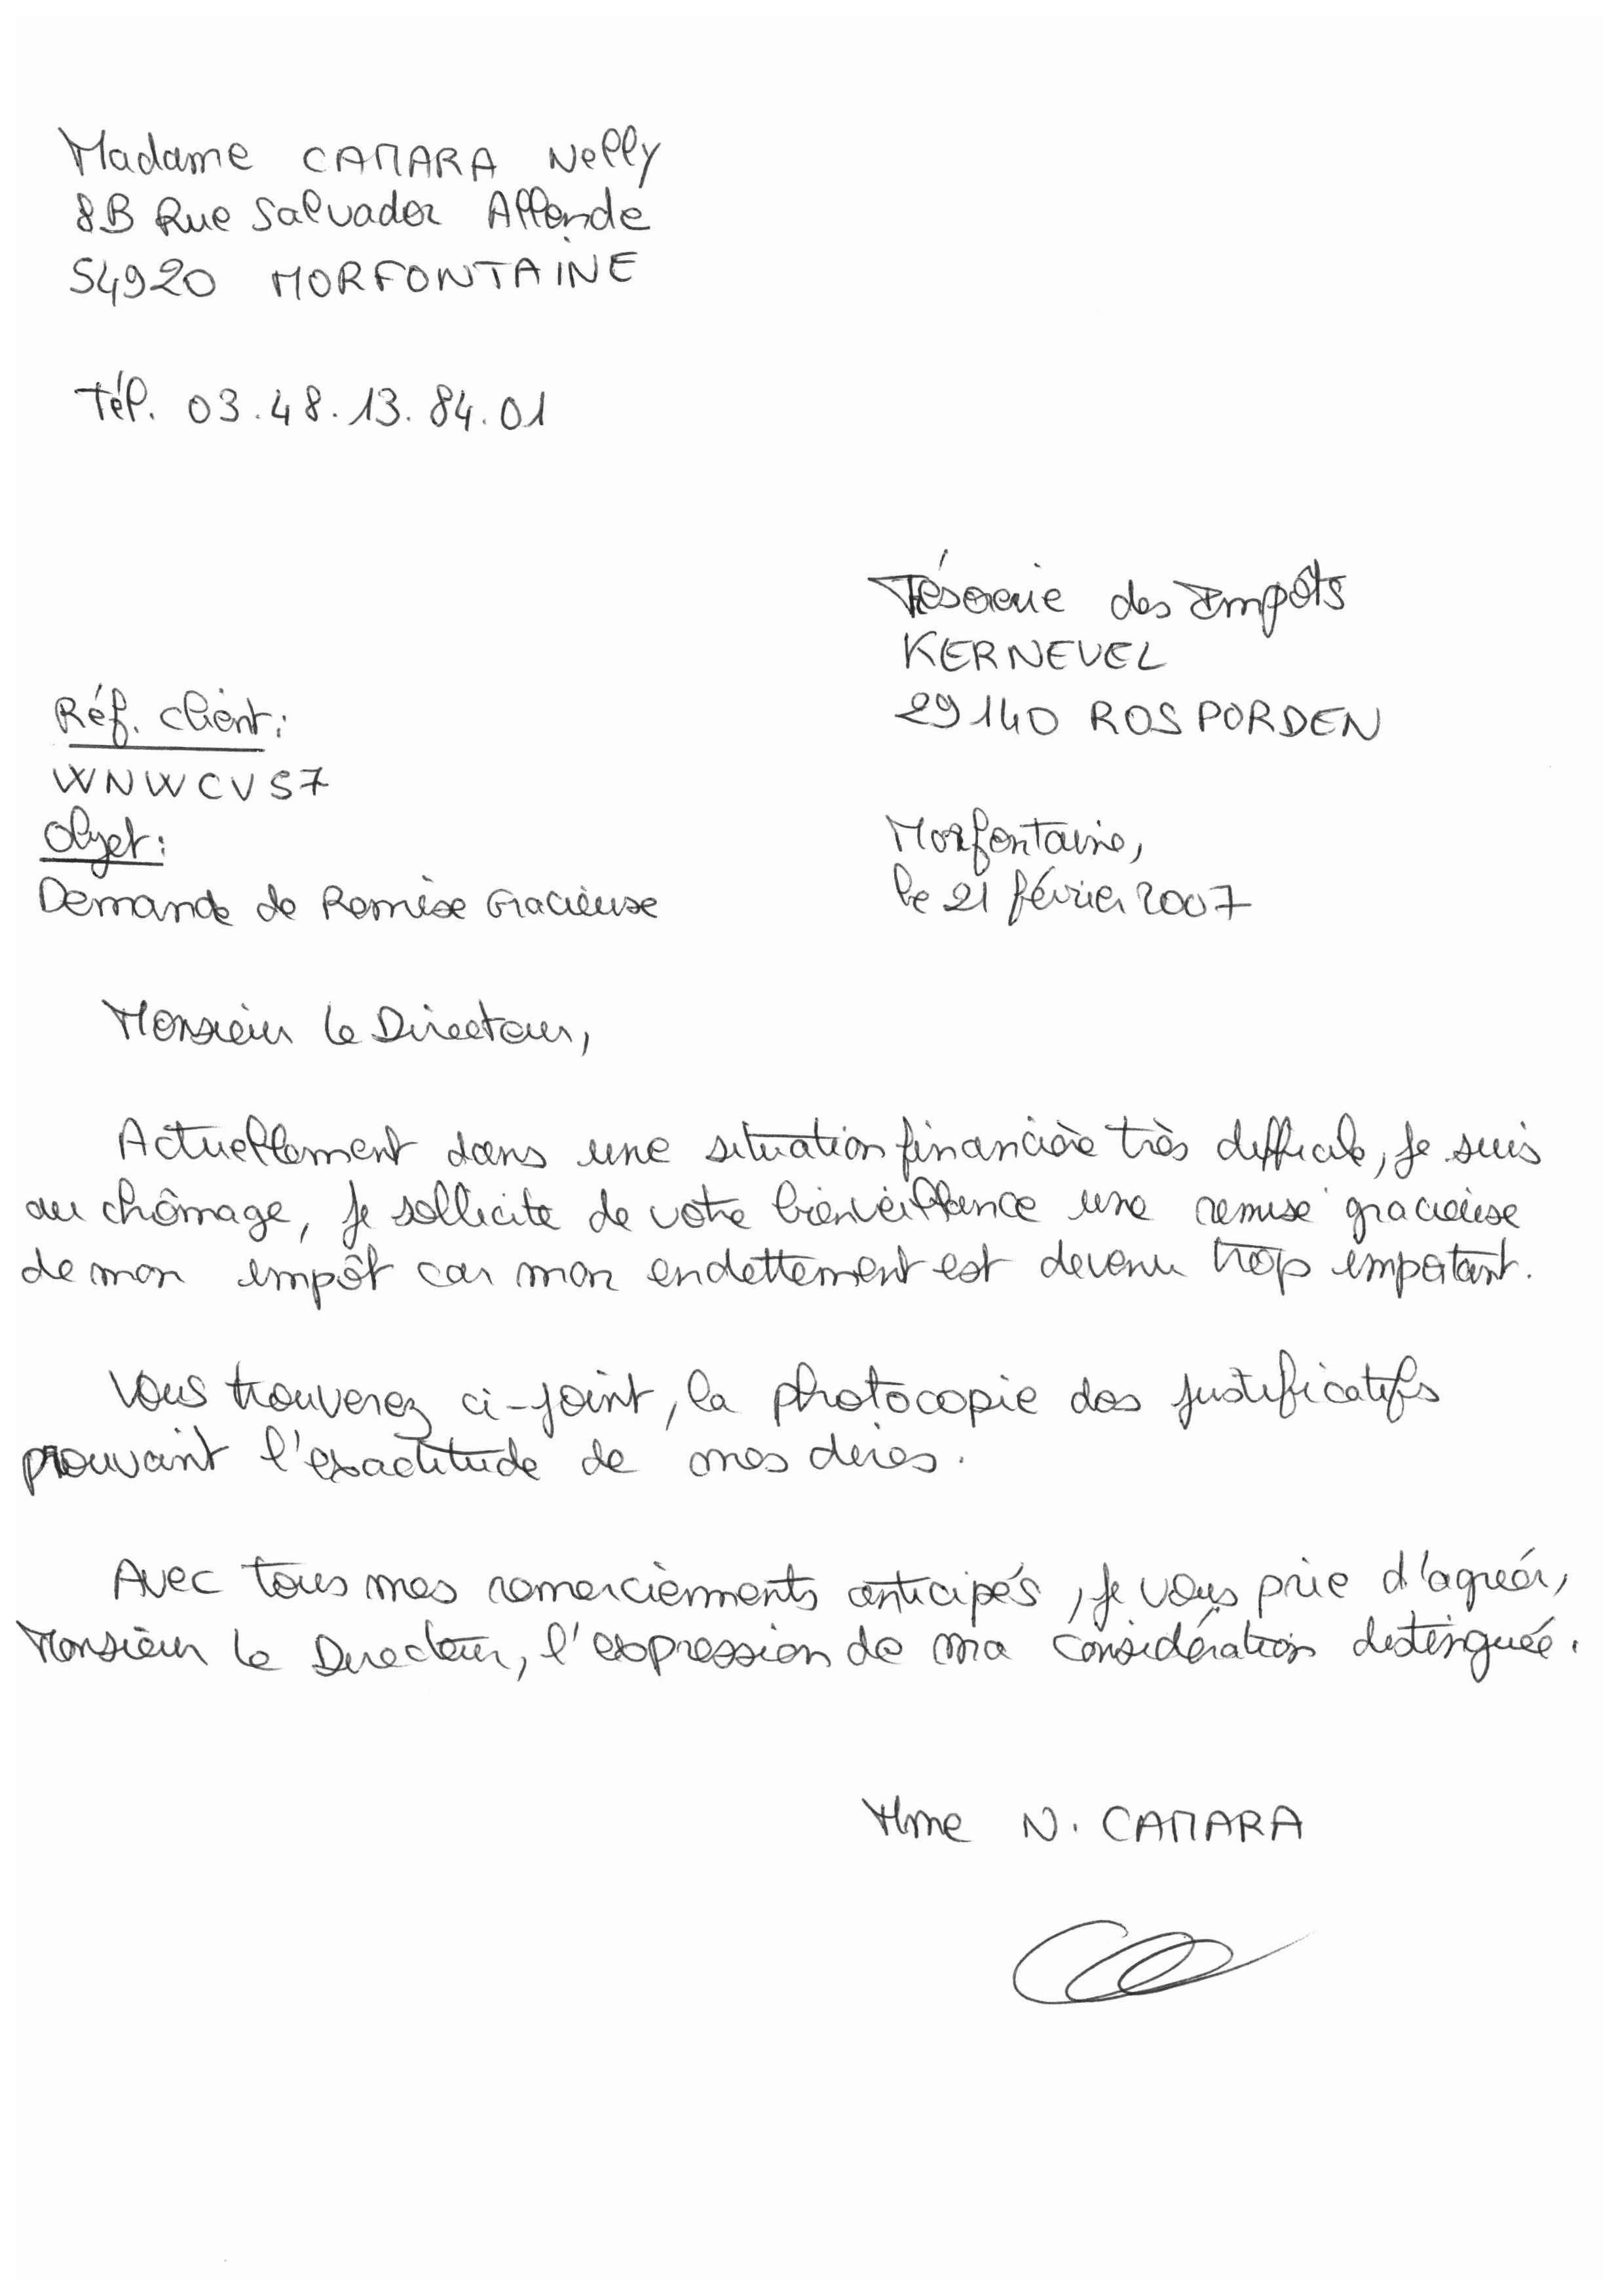 Madame CAMARA Nelly
8B Rue Salvador Allende
54920 MORFONTAINE
Tél. 03.48.13.84.01
Trésorerie des Impôts
KERNEVEL
29140 ROSPORDEN
Réf. client:
WNWCVS7
Objet:
Demande de Remise Gracieuse
Morfontaine,
le 21 février 2007
Monsieur le Directeur,
Actuellement dans une situation financière très difficile, je suis
au chômage, je sollicite de votre bienveillance une remise gracieuse
de mon impôt car mon endettement est devenu trop important.
Vous trouverez ci-joint, la photocopie des justificatifs
prouvant l'exactitude de mes dires.
Avec tous mes remerciements anticipés, je vous prie d'agréer,
Monsieur le Directeur, l'expression de ma considération distinguée.
Mme N. CAMARA